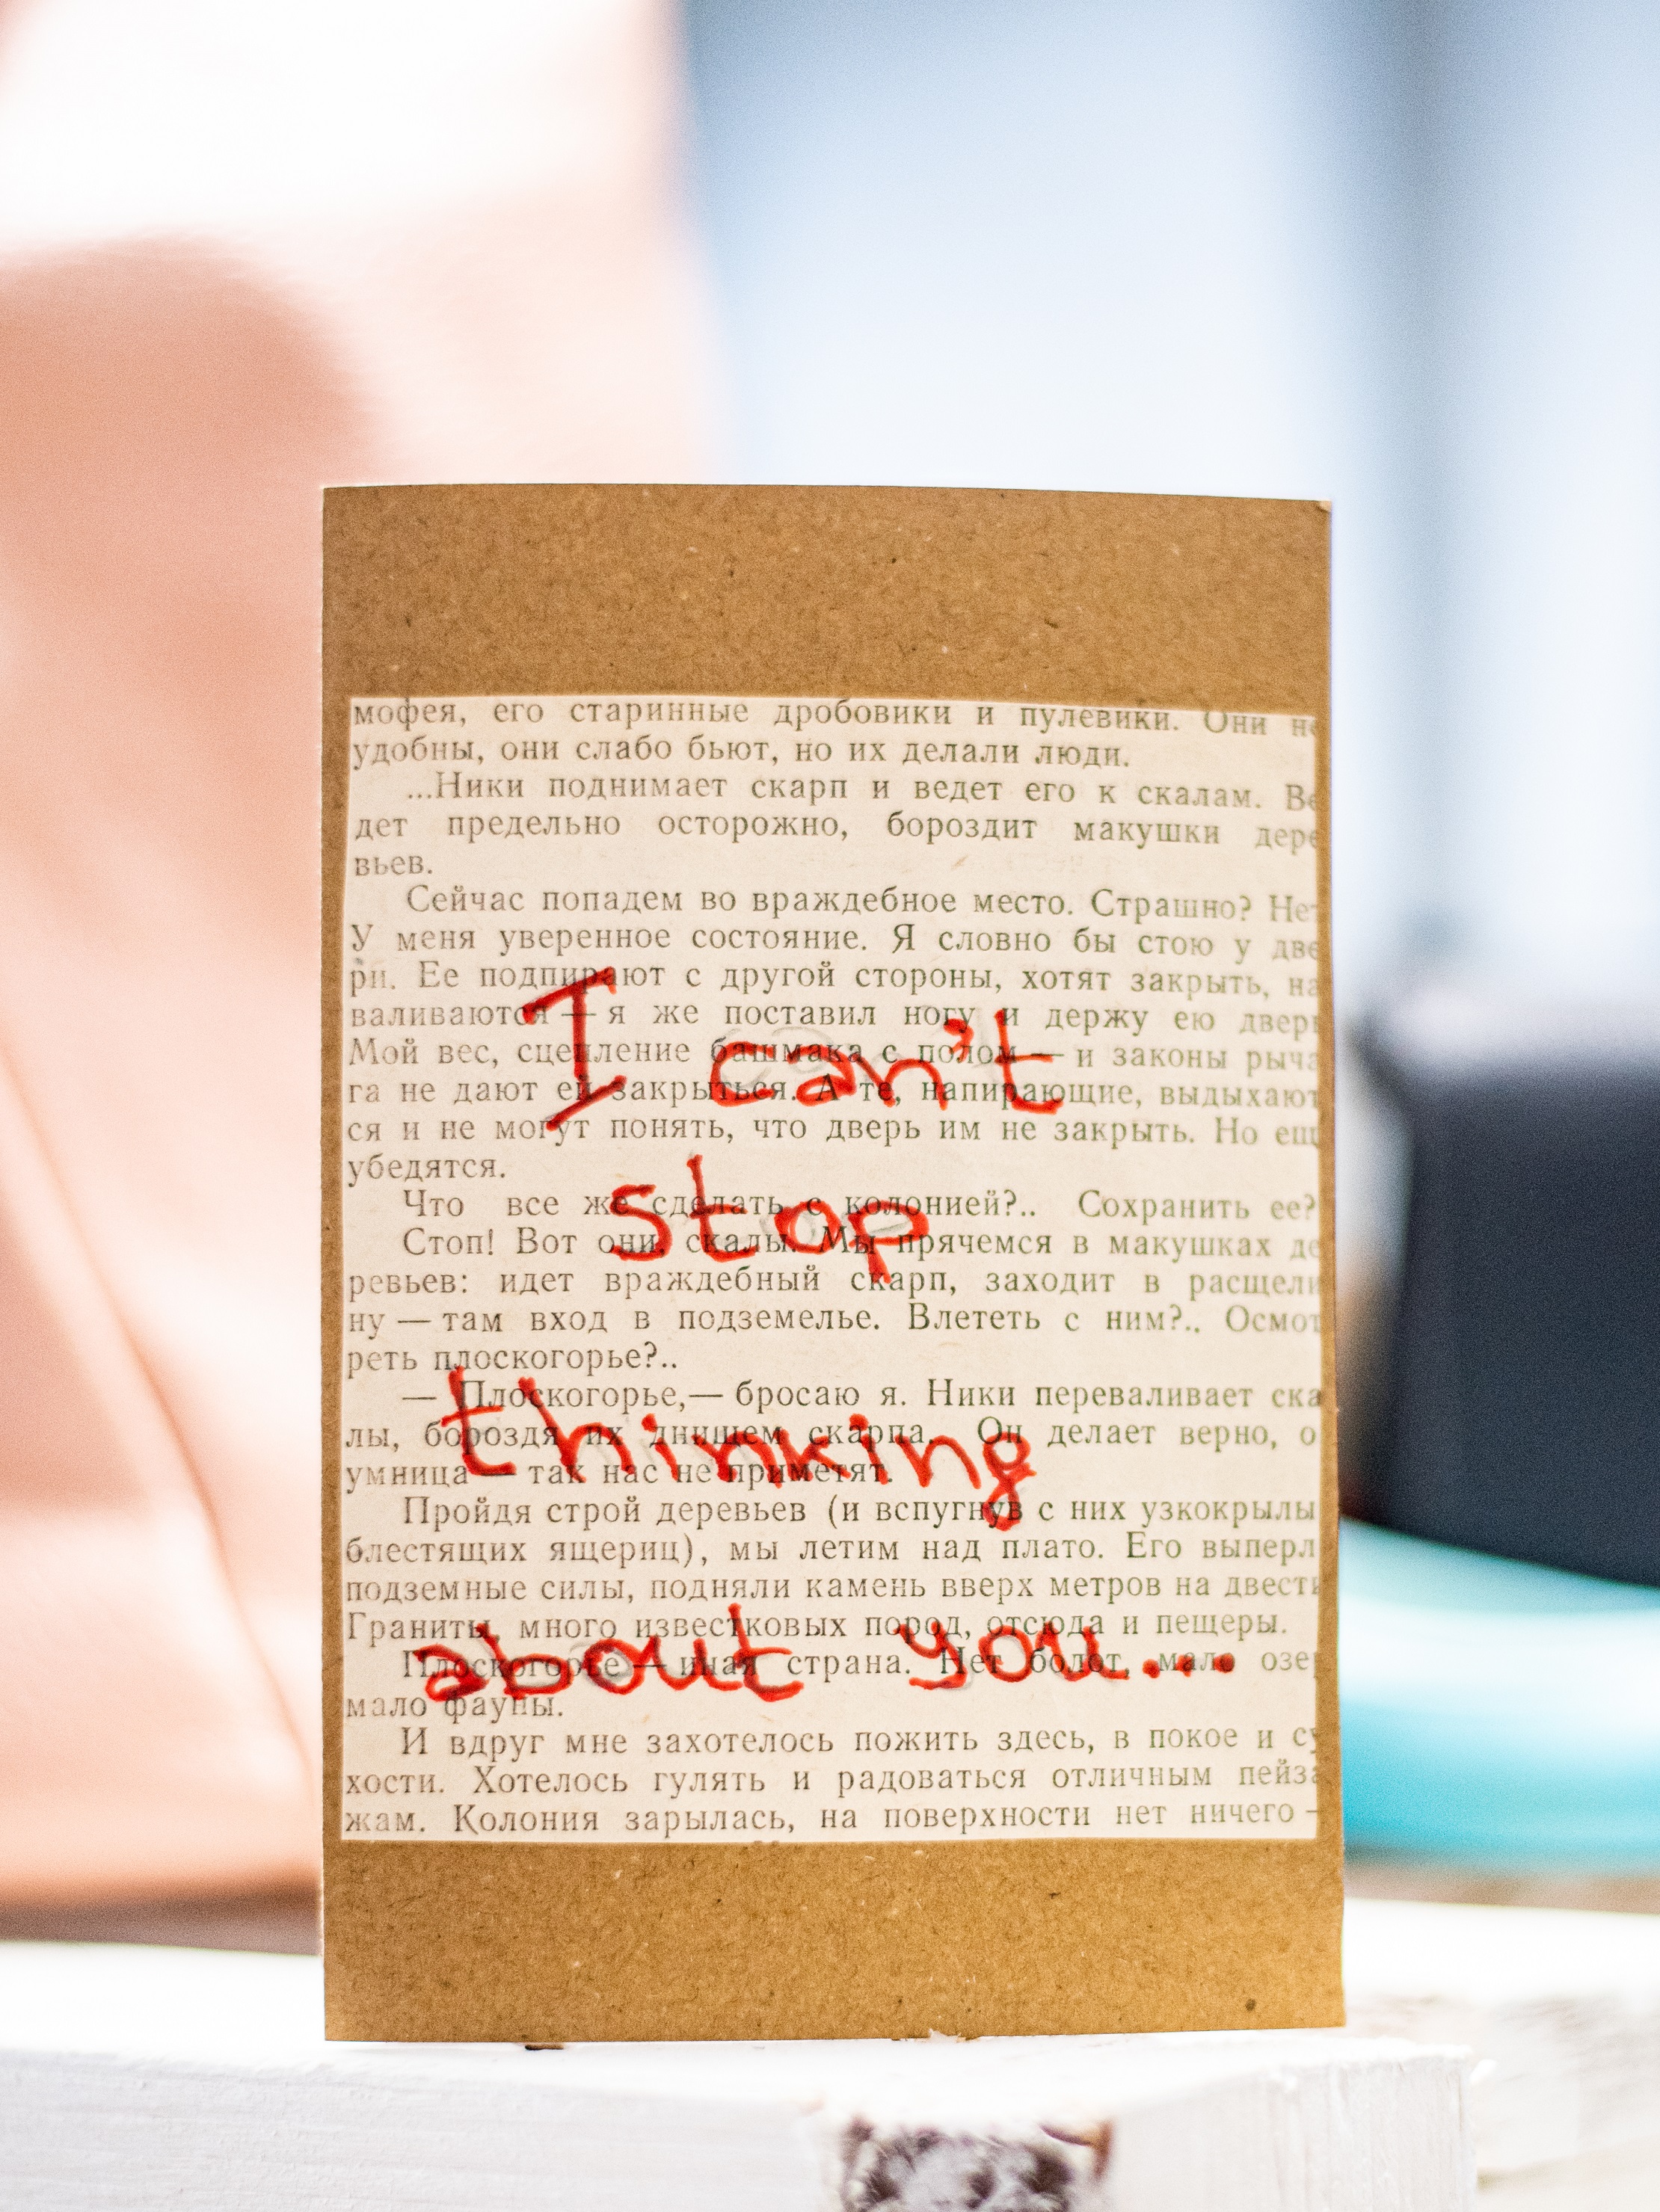 мофея, его старинные дробовики и пулевики. Они не
удобны, они слабо бьют, но их делали люди.
...Ники поднимает скарп и ведет его к скалам. Ве
дет предельно осторожно, бороздит макушки дере
вьев.
Сейчас попадем во враждебное место. Страшно? Нет
У меня уверенное состояние. Я словно бы стою у две
ри. Ее подпирают с другой стороны, хотят закрыть, на
валиваются — я же поставил ногу и держу ею дверь
I can't
Мой вес, сцепление башмака с полом — и законы рыча
га не дают ей закрыться. А те, напирающие, выдыхают
ся и не могут понять, что дверь им не закрыть. Но ещ
убедятся.
stop
Что все же сделать с колонией?.. Сохранить ее?
Стоп! Вот они, скалы. Мы прячемся в макушках де
ревьев: идет враждебный скарп, заходит в расщели
ну — там вход в подземелье. Влететь с ним?.. Осмот
реть плоскогорье?..
— Плоскогорье,— бросаю я. Ники переваливает ска
thinking
лы, бороздя их днищем скарпа. Он делает верно, о
умница — так нас не приметят.
Пройдя строй деревьев (и вспугнув с них узкокрылы
блестящих ящериц), мы летим над плато. Его выперл
подземные силы, подняли камень вверх метров на двести
Граниты, много известковых пород, отсюда и пещеры.
about you...
Плоскогорье — иная страна. Нет болот, мало озер
мало фауны.
И вдруг мне захотелось пожить здесь, в покое и су
хости. Хотелось гулять и радоваться отличным пейза
жам. Колония зарылась, на поверхности нет ничего —